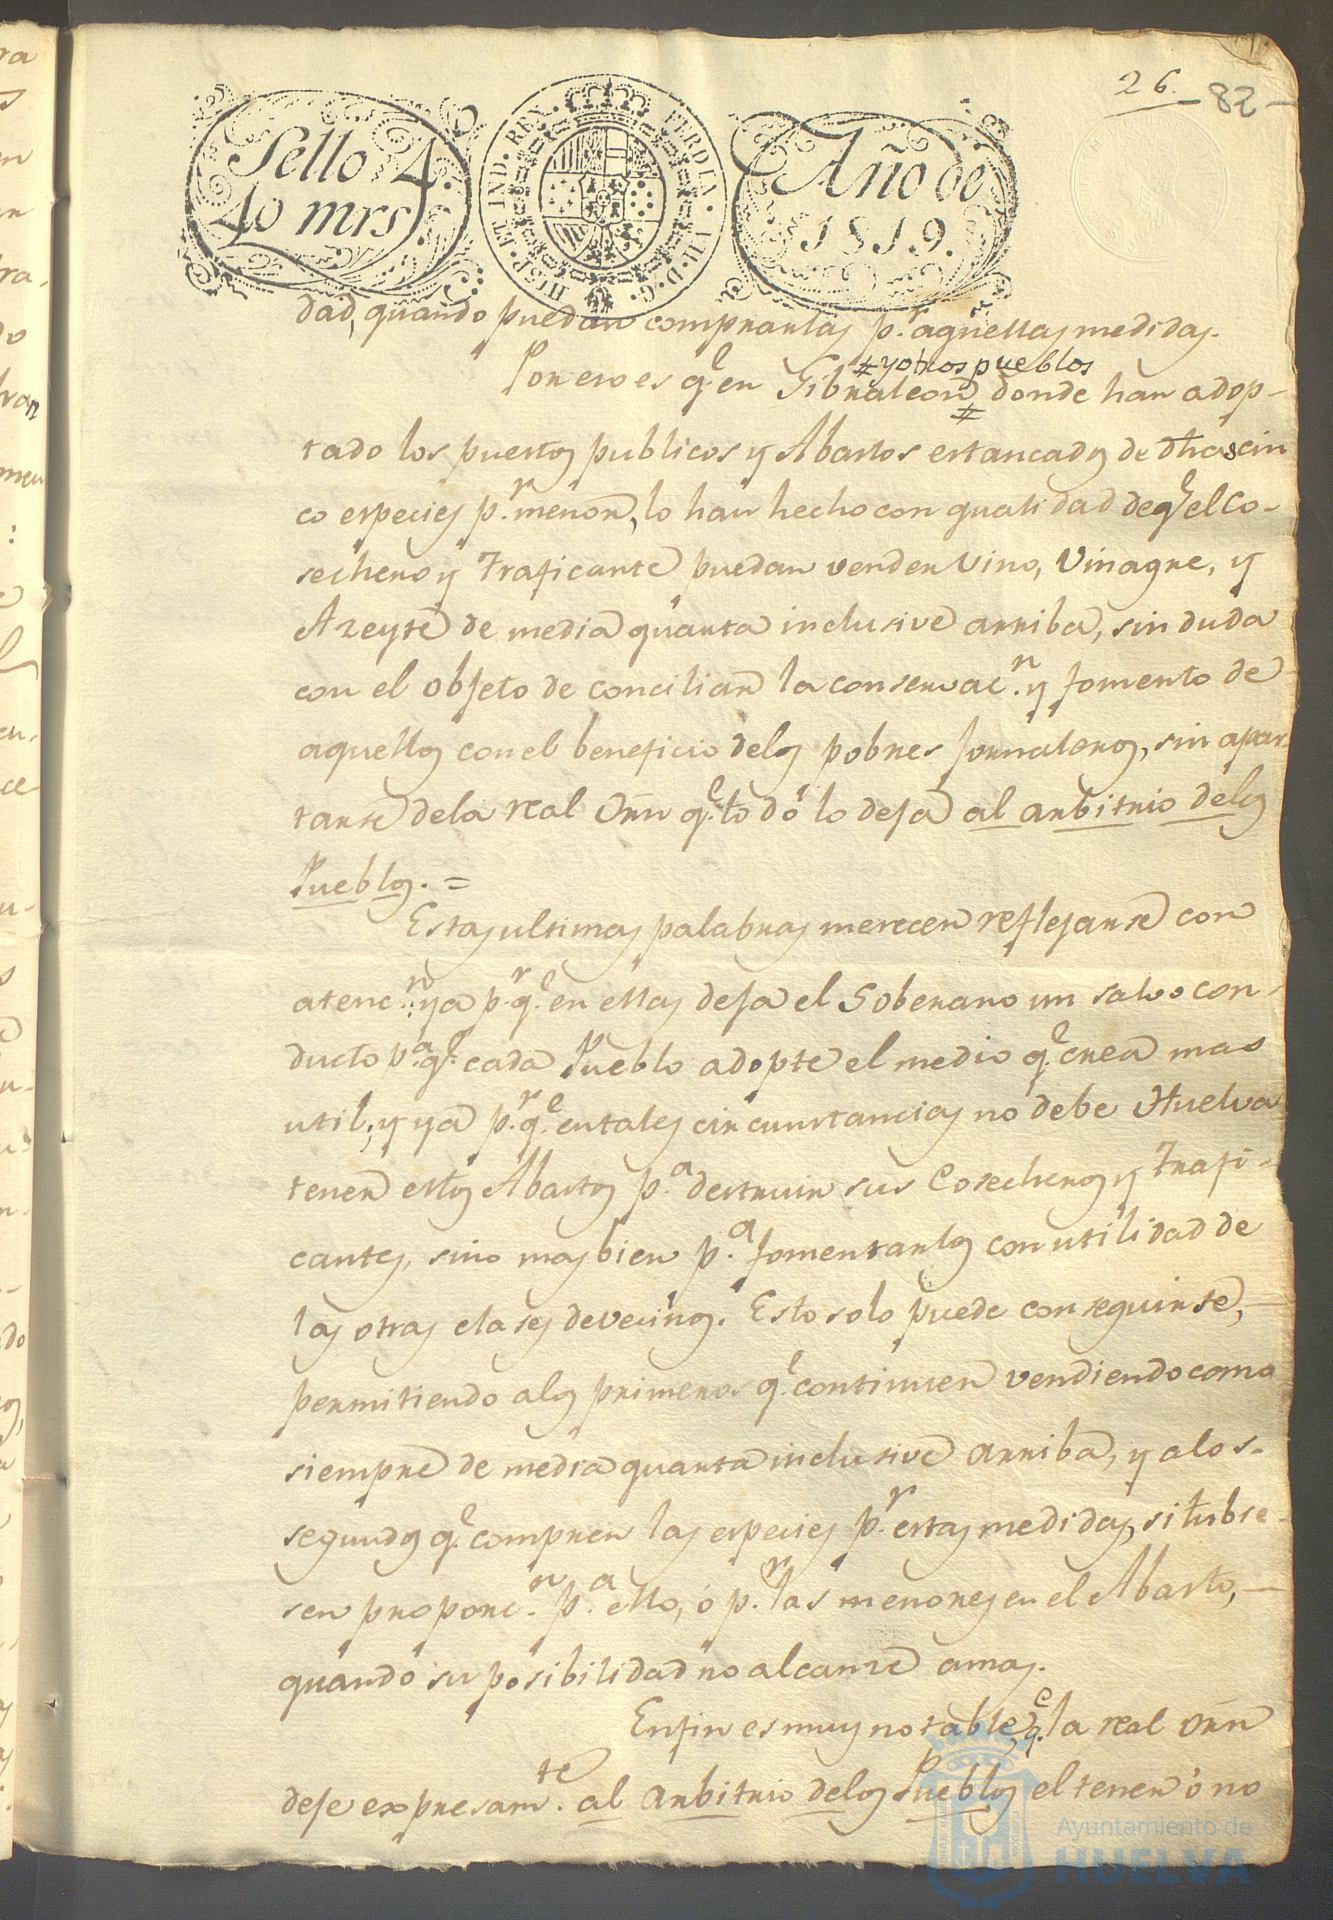 26. 82
Sello 4.
40 mrs.
HISP. ET IND. REX. FERDIN. VII. D. G.
Año de
1819.
dad, quando puedan comprarlas p.r aquellas medidas.
# y otros pueblos
Por eso es q.e en Gibraleon # donde han adop-
tado los puestos publicos y Abastos estancados de dhas cin
co especies p.r menor, lo han hecho con qualidad de q.e el Co-
sechero y Traficante puedan vender Vino, Vinagre, y
Azeyte de media quarta inclusive arriba, sin duda
con el objeto de conciliar la conservac.n y fomento de
aquellos con el beneficio delos pobres jornaleros, sin apar-
tarse dela real Orn q.e todo lo deja al arbitrio delos
Pueblos. =
Estas ultimas palabras merecen reflejarse con
atenc.n ya p.r q.e en ellas deja el Soberano un salvo con-
ducto p.a q.e cada Pueblo adopte el medio q.e crea mas
util, y ya p.r q.e en tales circunstancias no debe Huelva
tener estos Abastos p.a destruir sus Cosecheros y Trafi-
cantes, sino mas bien p.a fomentarlos con utilidad de
las otras clases de vecinos. Esto solo puede conseguirse,
permitiendo alos primeros q.e continuen vendiendo como
siempre de media quarta inclusive arriba, y alos
segundos q.e compren las especies p.r estas medidas, si tubie-
sen proporc.n p.a ello, ó p.r las menores en el Abasto,
quando su posibilidad no alcanze a mas.
En fin es muy notable, q.e la real Orn
deje expresam.te al arbitrio delos Pueblos el tener ó no
Ayuntamiento de
HUELVA